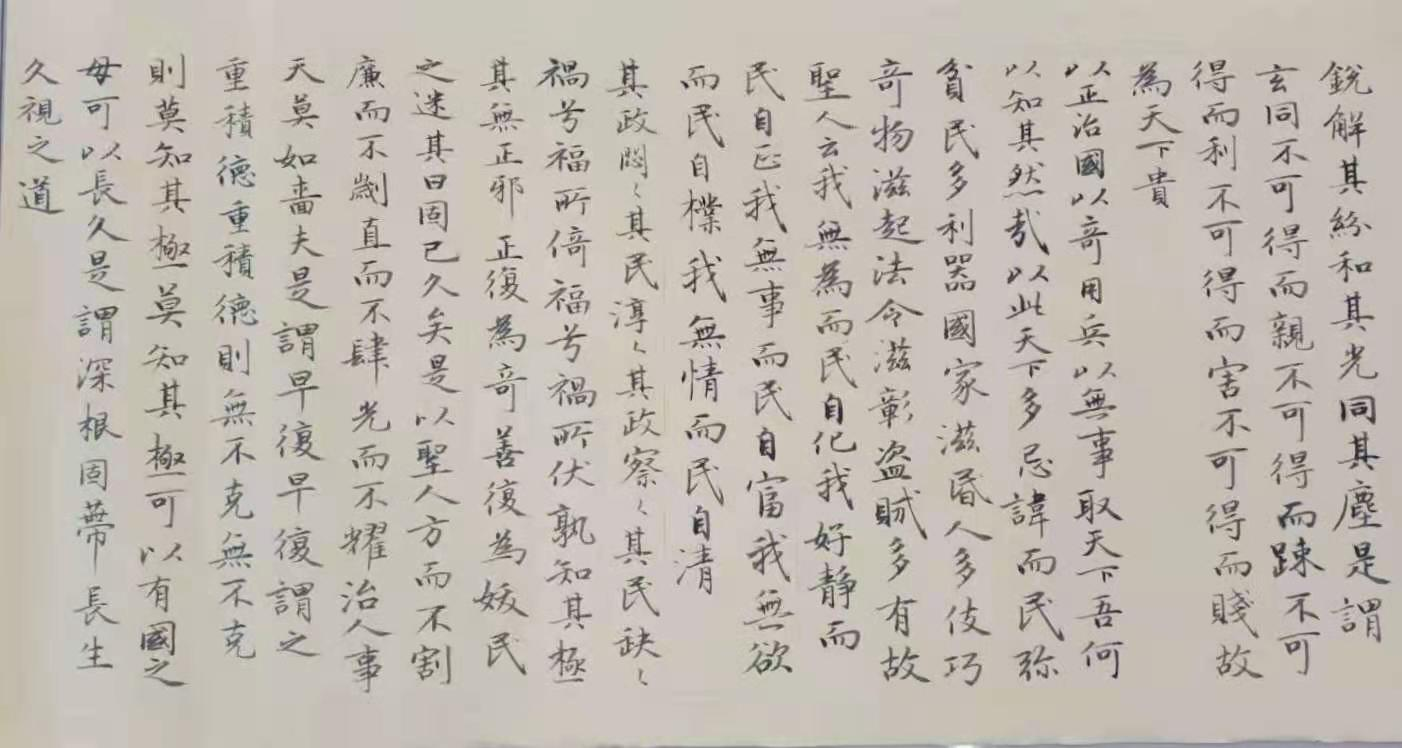 銳解其紛和其光同其塵是謂
玄同不可得而親不可得而踈不可
得而利不可得而害不可得而賤故
為天下貴
以正治國以竒用兵以無事取天下吾何
以知其然哉以此天下多忌諱而民弥
貧民多利器國家滋昬人多伎巧
竒物滋起法令滋彰盗賊多有故
聖人云我無為而民自化我好静而
民自正我無事而民自富我無欲
而民自樸我無情而民自清
其政悶〻其民淳〻其政察〻其民缺〻
禍兮福所倚福兮禍所伏孰知其極
其無正邪正復為竒善復為妖民
之迷其日固已久矣是以聖人方而不割
廉而不劌直而不肆光而不耀治人事
天莫如嗇夫是謂早復早復謂之
重積德重積德則無不克無不克
則莫知其極莫知其極可以有國之
母可以長久是謂深根固蔕長生
久視之道